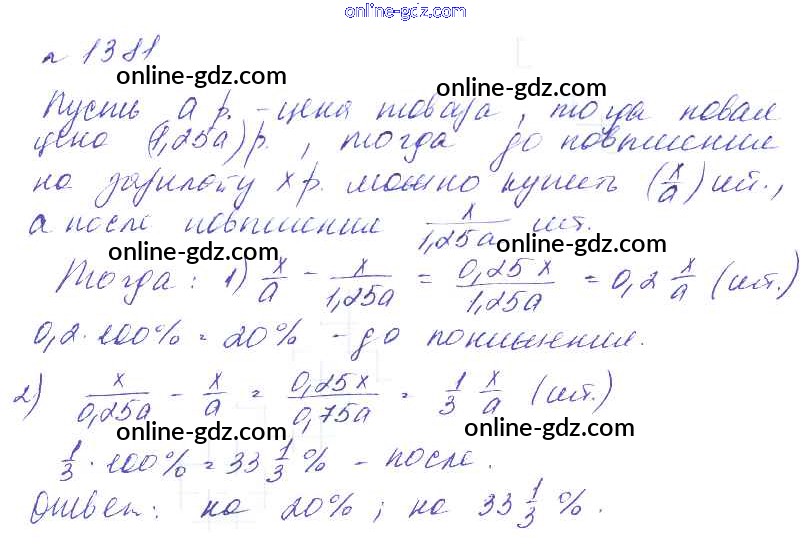 online-gdz.com
n 1381
online-gdz.com online-gdz.com
Пусть a р. - цена товара, тогда новая
цена (1,25a) р., тогда до повышения
на зарплату x р. можно купить (x/a) шт.,
а после повышения x/1,25a шт.
online-gdz.com online-gdz.com
Тогда: 1) x/a - x/1,25a = 0,25x/1,25a = 0,2 x/a (шт.)
online-gdz.com online-gdz.com
0,2 · 100% = 20% - до понижения.
2) x/0,25a - x/a = 0,25x/0,75a = 1/3 x/a (шт.)
online-gdz.com online-gdz.com
1/3 · 100% = 33 1/3 % - после.
Ответ: на 20%; на 33 1/3 %.